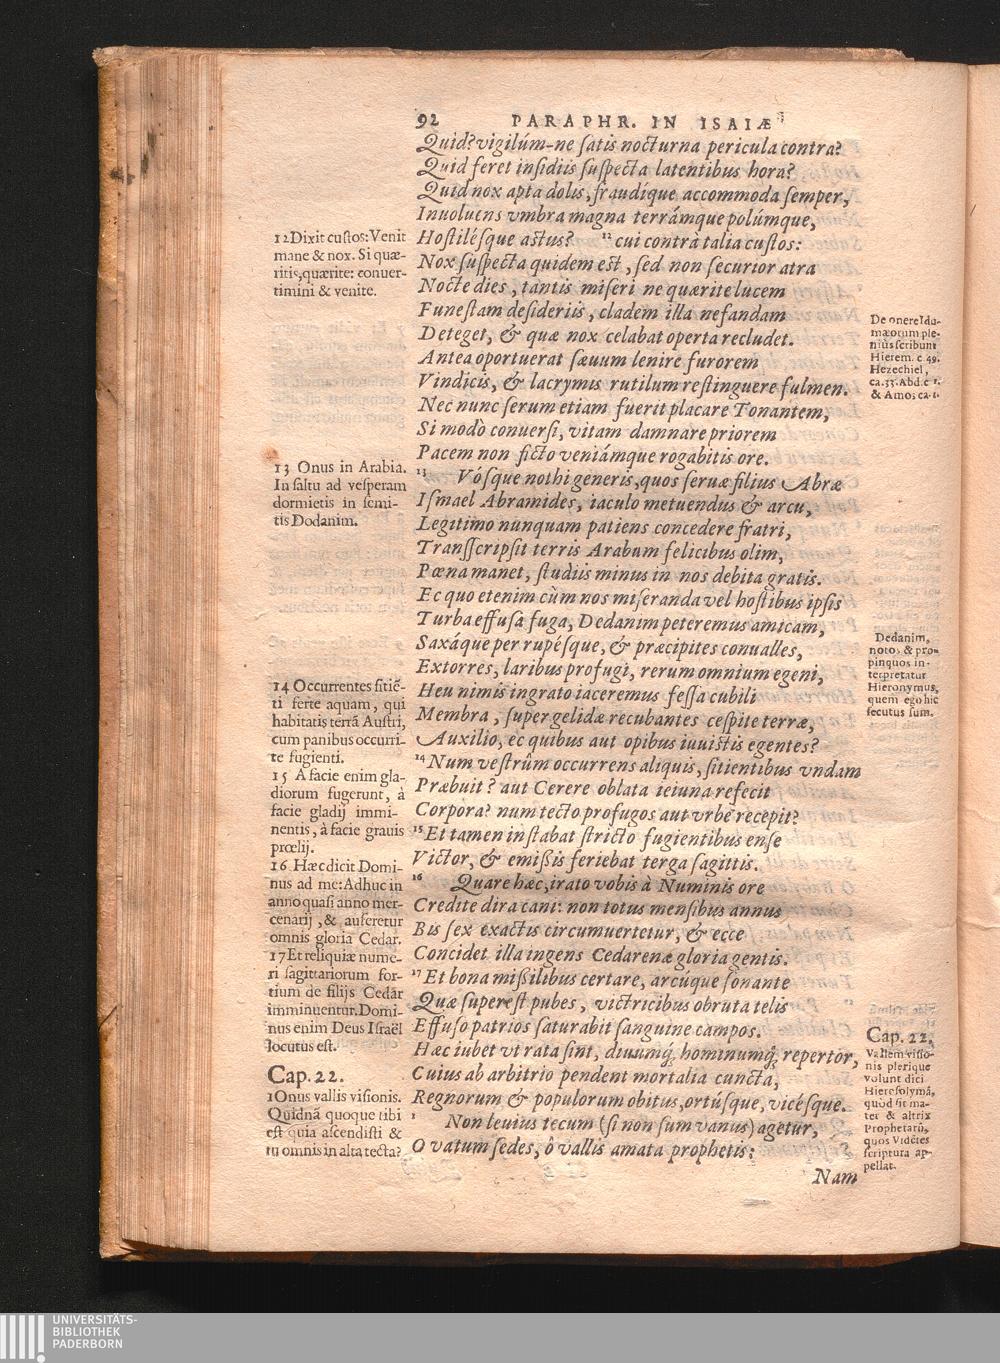 92 PARAPHR. IN ISAIÆ
Quid? vigilúm-ne ſatis nocturna pericula contra?
Quid feret inſidiis ſuſpecta latentibus hora?
Quid nox apta dolis, fraudíque accommoda ſemper,
Inuoluens vmbra magna terrámque polúmque,
Hoſtiléſque aſtus? 12 cui contrà talia cuſtos:
Nox ſuſpecta quidem eſt, ſed non ſecurior atra
Nocte dies, tantis miſeri ne quærite lucem
Funeſtam deſideriis, cladem illa nefandam
Deteget, & quæ nox celabat operta recludet.
Antea oportuerat ſæuum lenire furorem
Vindicis, & lacrymis rutilum reſtinguere fulmen.
Nec nunc ſerum etiam fuerit placare Tonantem,
Si modò conuerſi, vitam damnare priorem
Pacem non ficto veniámque rogabitis ore.
13 Vóſque nothi generis, quos ſeruæ filius Abræ
Iſmael Abramides, iaculo metuendus & arcu,
Legitimo nunquam patiens concedere fratri,
Tranſſcripſit terris Arabum felicibus olim,
Pœna manet, ſtudiis minus in nos debita gratis.
Ec quo etenim cùm nos miſeranda vel hoſtibus ipſis
Turba effuſa fuga, Dedanim peteremus amicam,
Saxáque per rupéſque, & præcipites conualles,
Extorres, laribus profugi, rerum omnium egeni,
Heu nimis ingrato iaceremus feſſa cubili
Membra, ſuper gelidæ recubantes ceſpite terræ,
Auxilio, ec quibus aut opibus iuuiſtis egentes?
14 Num veſtrûm occurrens aliquis, ſitientibus vndam
Præbuit? aut Cerere oblata ieiuna refecit
Corpora? num tecto profugos aut vrbe recepit?
15 Et tamen inſtabat ſtricto fugientibus enſe
Victor, & emißis feriebat terga ſagittis.
16 Quare hæc, irato vobis à Numinis ore
Credite dira cani: non totus menſibus annus
Bis ſex exactis circumuertetur, & ecce
Concidet illa ingens Cedarenæ gloria gentis.
17 Et bona mißilibus certare, arcúque ſonante
Quæ ſupereſt pubes, victricibus obruta telis
Effuſo patrios ſaturabit ſanguine campos.
Hæc iubet vt rata ſint, diuumq́; hominumq́; repertor,
Cuius ab arbitrio pendent mortalia cuncta,
Regnorum & populorum obitus, ortúſque, vicéſque.
1 Non leuius tecum (ſi non ſum vanus) agetur,
O vatum ſedes, ô vallis amata prophetis:
Nam
12 Dixit cuſtos: Venit
mane & nox. Si quæ-
ritis, quærite: conuer-
timini & venite.
13 Onus in Arabia.
In ſaltu ad veſperam
dormietis in ſemi-
tis Dodanim.
14 Occurrentes ſitiē-
ti ferte aquam, qui
habitatis terrā Auſtri,
cum panibus occurri-
te fugienti.
15 A facie enim gla-
diorum fugerunt, à
facie gladij immi-
nentis, à facie grauis
prœlij.
16 Hæc dicit Domi-
nus ad me: Adhuc in
anno quaſi anno mer-
cenarij, & auferetur
omnis gloria Cedar.
17 Et reliquiæ nume-
ri ſagittariorum for-
tium de filijs Cedar
imminuentur. Domi-
nus enim Deus Iſraël
locutus eſt.
Cap. 22.
1 Onus vallis viſionis.
Quidnā quoque tibi
eſt quia aſcendiſti &
tu omnis in alta tecta?
De onere Idu-
mæorum ple-
niùs ſcribunt
Hierem. c 49.
Hezechiel,
ca. 35. Abd. c 1.
& Amos ca. 1.
Dedanim,
notos & pro-
pinquos in-
terpretatur
Hieronymus,
quem ego hic
ſecutus ſum.
Cap. 22.
Vallem viſio-
nis plerique
volunt dici
Hieroſolymā,
quòd ſit ma-
ter & altrix
Prophetarū,
quos Vidētes
ſcriptura ap-
pellat.
UNIVERSITÄTS-
BIBLIOTHEK
PADERBORN